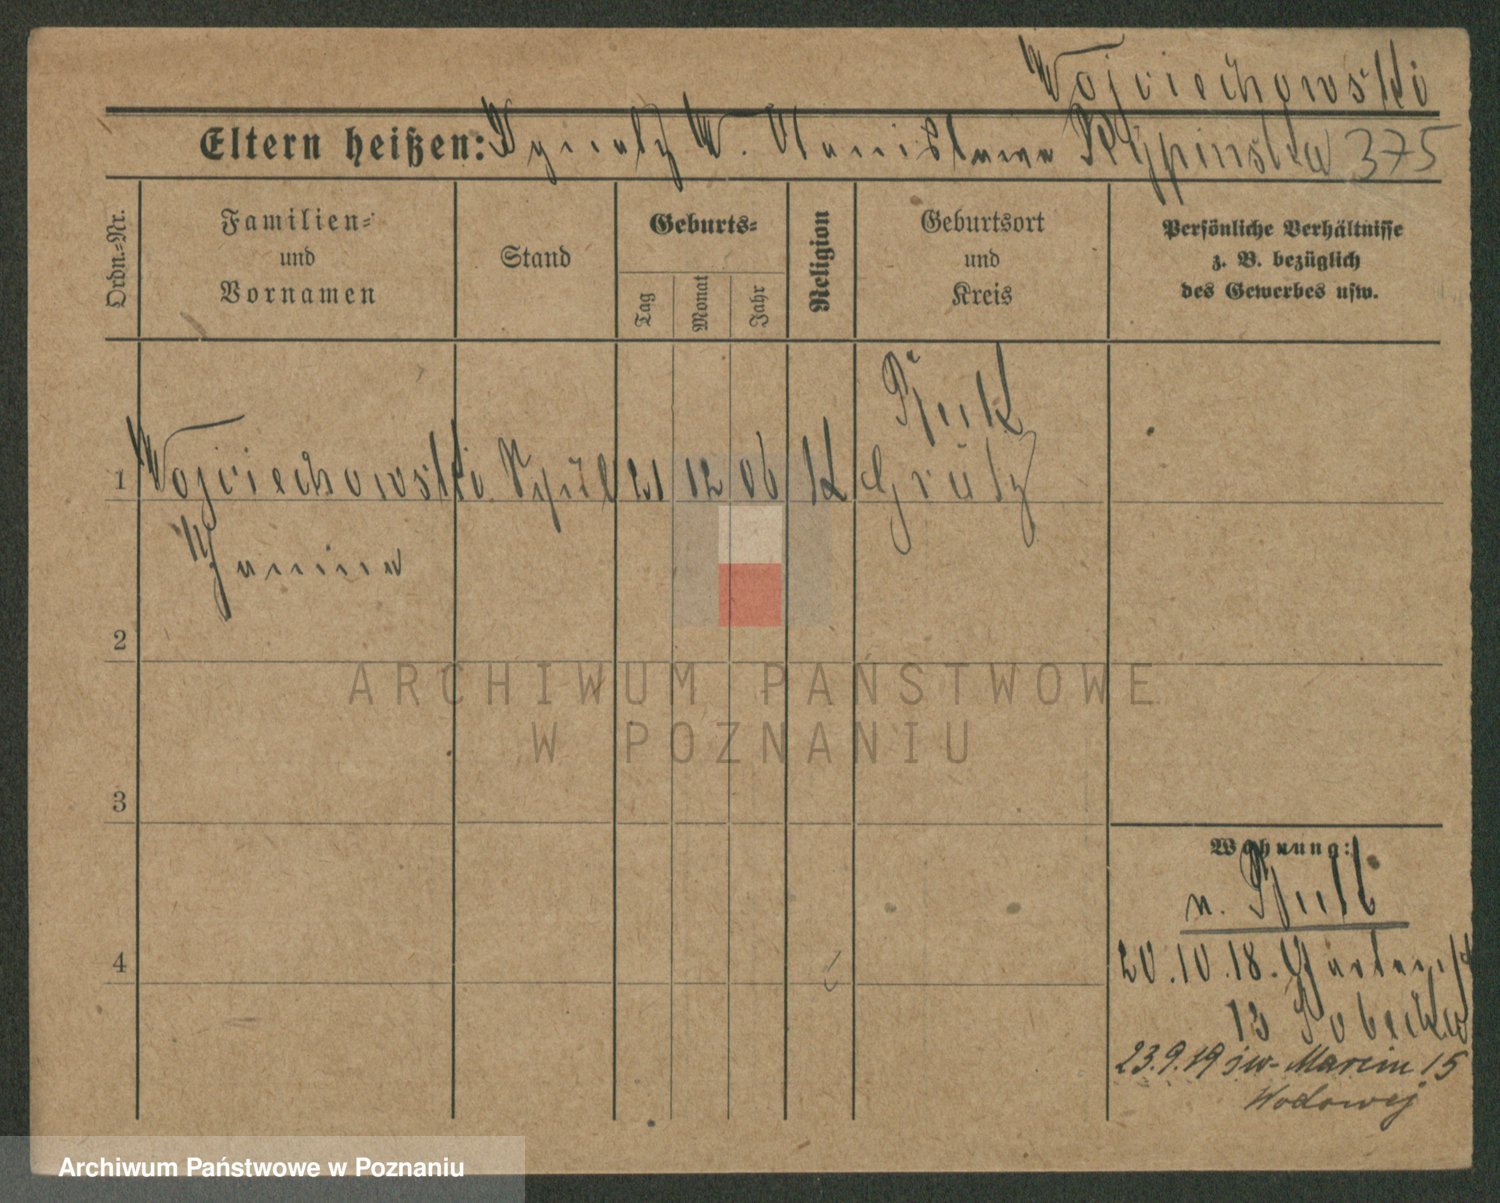 Wojciechowski
Eltern heißen: Ignatz W. Stanislawa Rypinska 375
Ordn.-Nr.
Familien-
und
Vornamen
Stand
Geburts-
Tag
Monat
Jahr
Religion
Geburtsort
und
Kreis
Persönliche Verhältnisse
z. B. bezüglich
des Gewerbes usw.
1 Wojciechowski Schül 21 12 06 K Grätz
Janina
2
ARCHIWUM PAŃSTWOWE
W POZNANIU
3
Wohnung:
n.
4
20.10.18. Gartenstr
13
23.9.19 św. Marcin 15
Wodowej
Archiwum Państwowe w Poznaniu